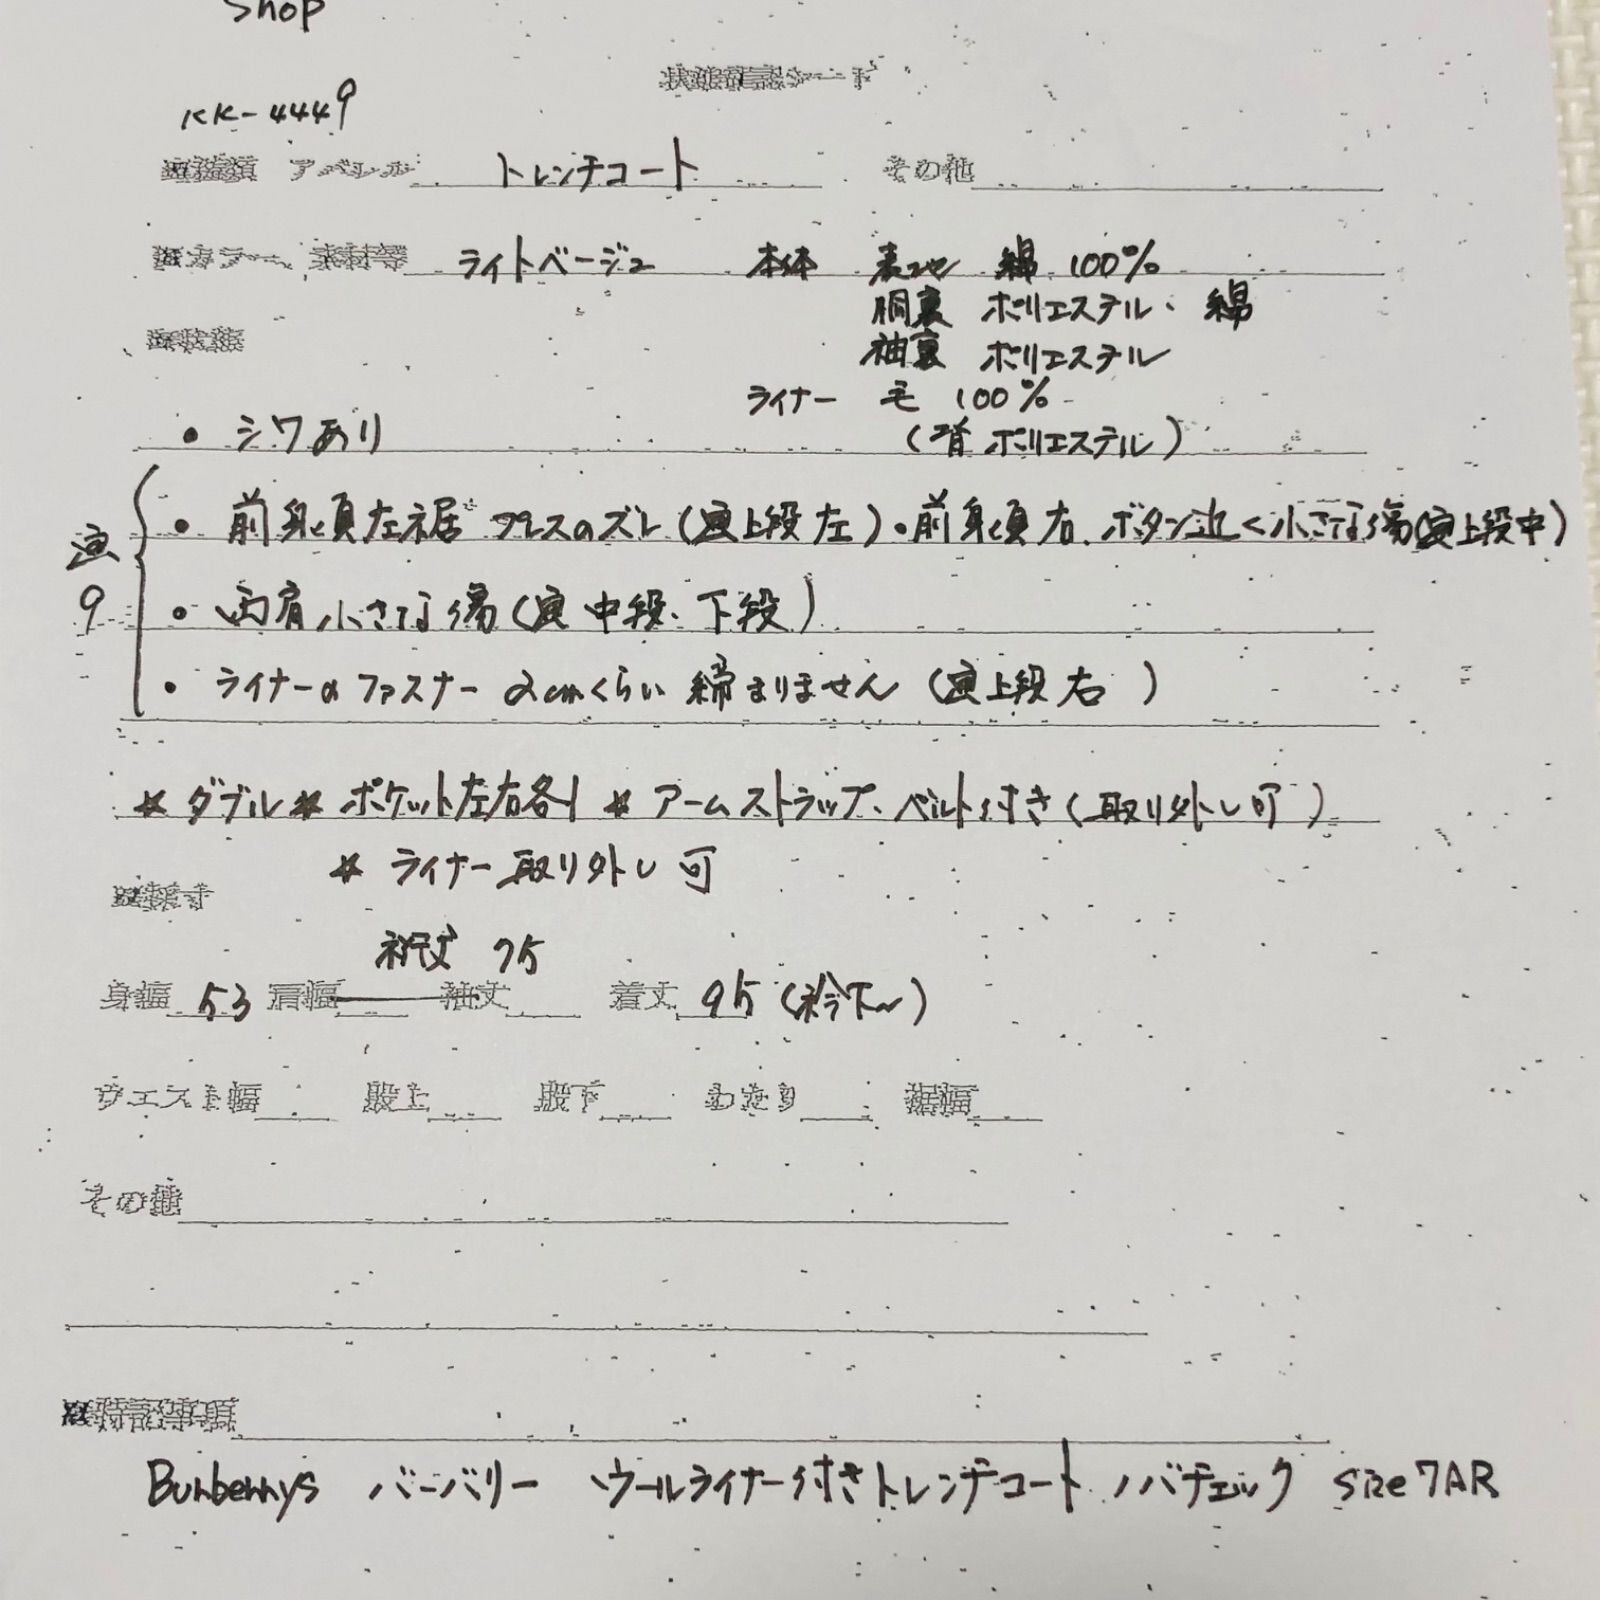 Shop
状態確認シート
KK-4449
アパレル トレンチコート その他
カラー、素材等 ライトベージュ 本体 表地 綿 100%
胴裏 ポリエステル・綿
袖裏 ポリエステル
ライナー 毛 100%
(肩 ポリエステル)
・シワあり
・前身頃左裾 プレスのズレ(画上段左)・前身頃右 ボタン近く小さな傷(画上段中)
画9
・両肩小さな傷(画中段、下段)
・ライナーのファスナー 2cmくらい締まりません(画上段右)
☆ダブル☆ポケット左右各1 ☆アームストラップ、ベルト付き(取り外し可)
☆ライナー取り外し可
■採寸
裄丈 75
身幅 53 肩幅 袖丈 着丈 95(衿下〜)
ウエスト幅 股上 股下 わたり 裾幅
その他
特記事項
Burberrys バーバリー ウールライナー付きトレンチコート ノバチェック size7AR